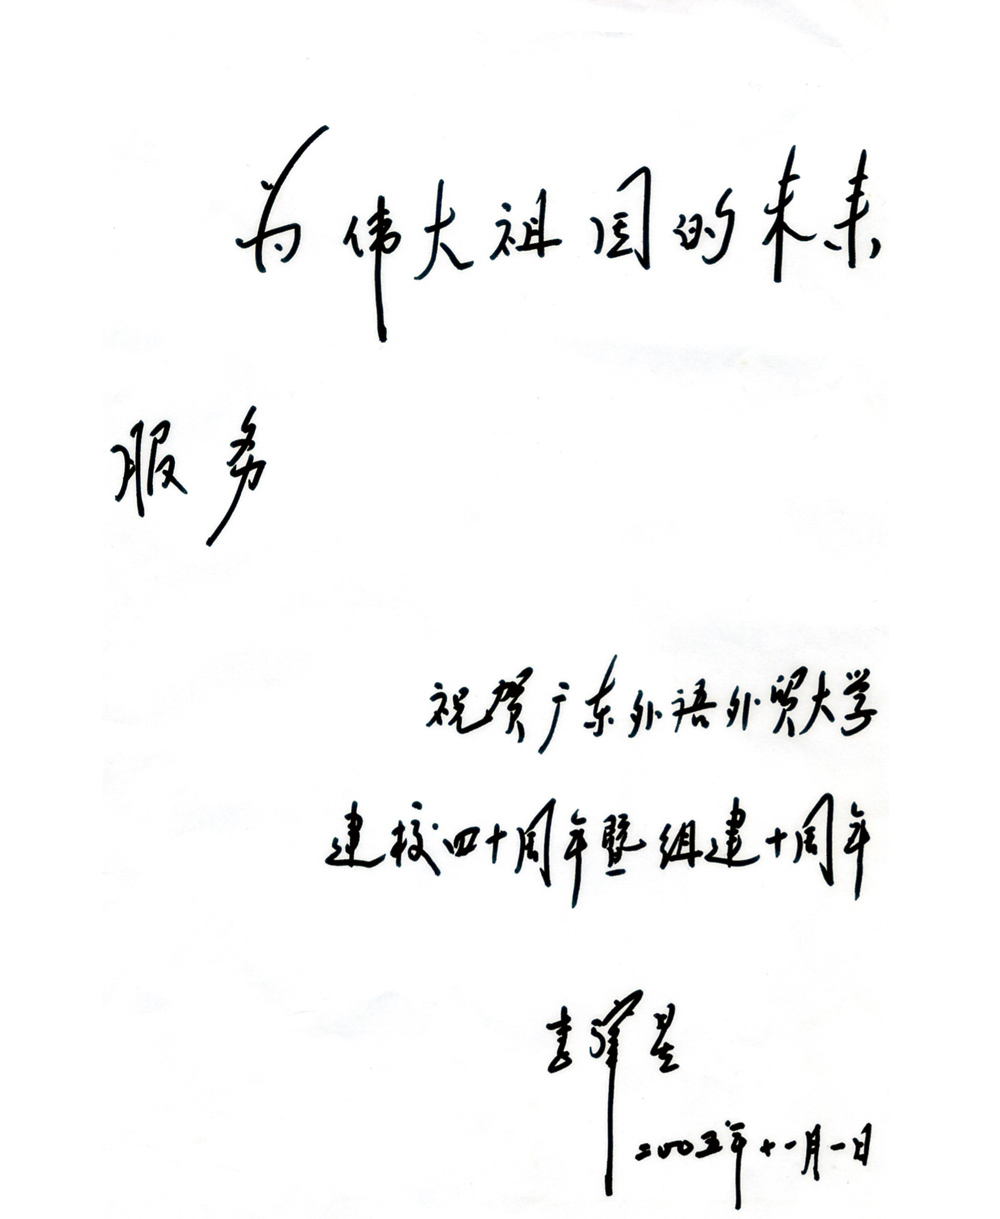 为伟大祖国的未来
服务
祝贺广东外语外贸大学
建校四十周年暨组建十周年
李肇星
二〇〇五年十一月一日